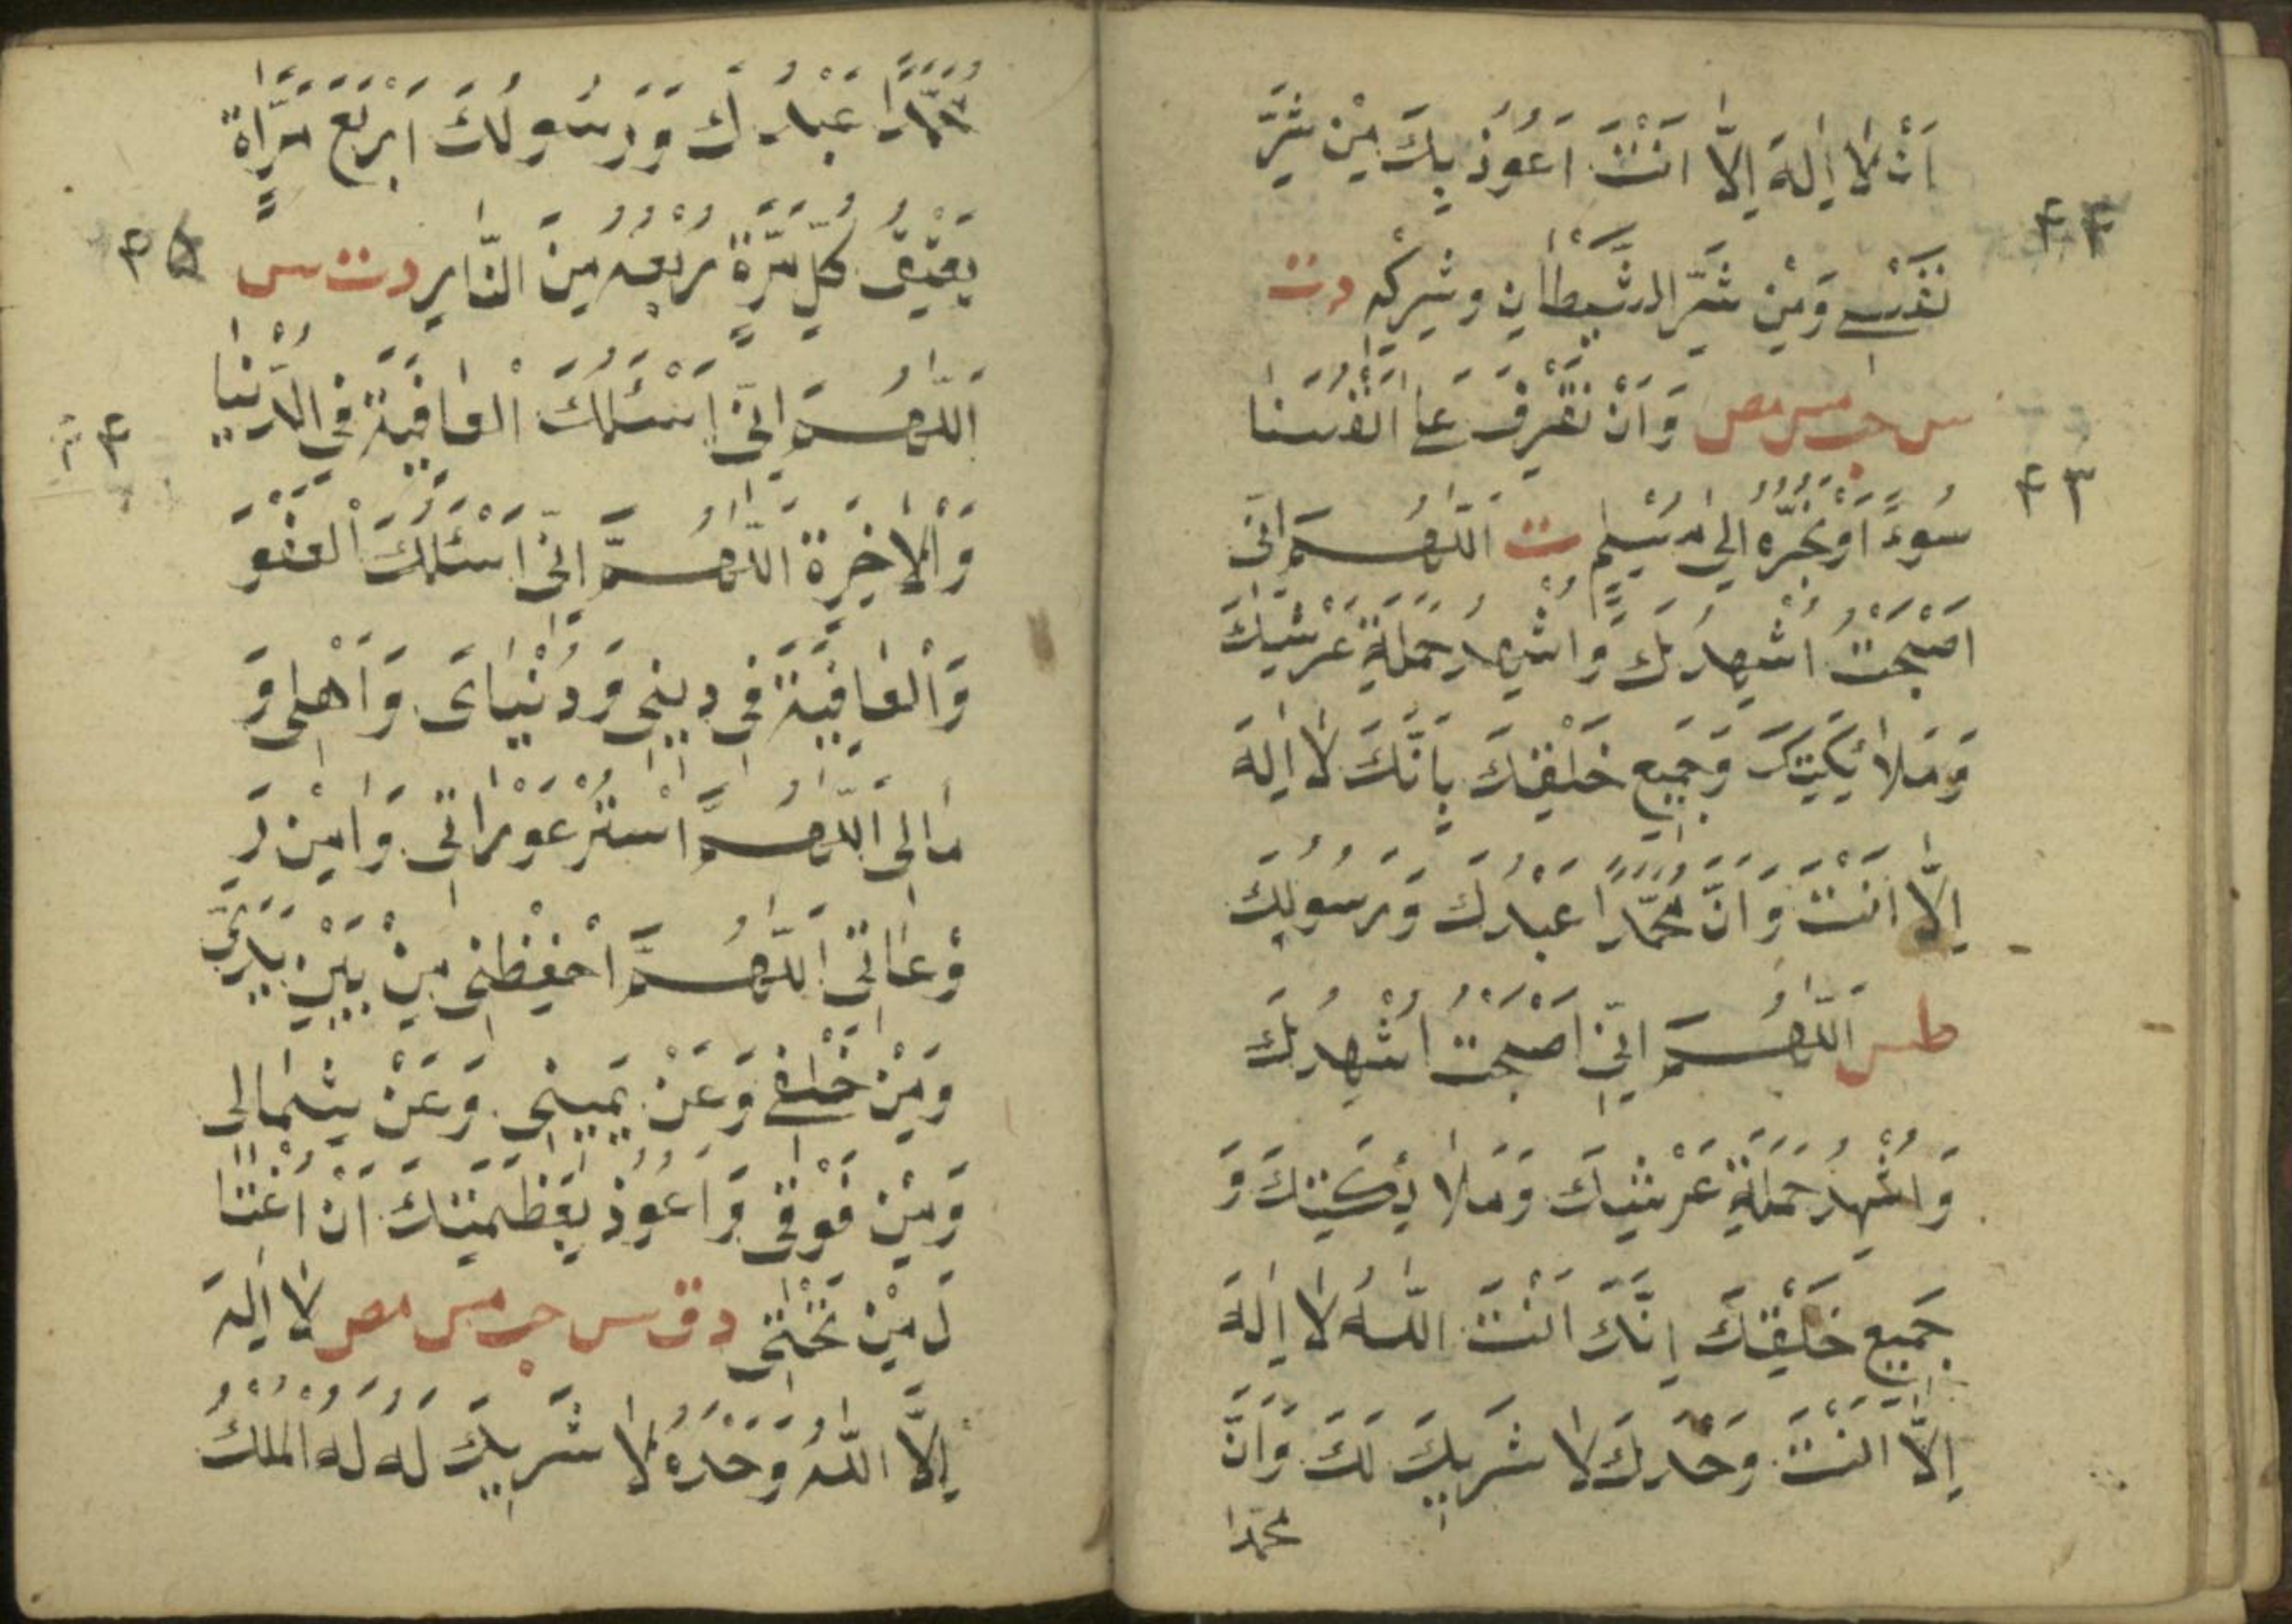 اَنْ لَا اِلٰهَ اِلَّا اَنْتَ اَعُوْذُ بِكَ مِنْ شَرِّ
نَفْسِے وَمِنْ شَرِّ الشَّيْطَانِ وشِرْكِه دت
۴۴
س حب مس مص وَاَنْ نَقْتَرِفَ عَلٰى اَنْفُسِنَا
سُوءً اَوْ نَجُرَّهُ اِلٰى مُسْلِمٍ ت اَللّٰهُمَّ اِنِّى
۴۳
اَصْبَحْتُ اُشْهِدُكَ وَاُشْهِدُ حَمَلَةَ عَرْشِكَ
وَمَلَائِكَتِكَ وَجَمِيْعِ خَلْقِكَ بِاَنَّكَ لَا اِلٰهَ
اِلَّا اَنْتَ وَاَنَّ مُحَمَّدًا عَبْدُكَ وَرَسُوْلُكَ
طس اَللّٰهُمَّ اِنِّى اَصْبَحْتُ اُشْهِدُكَ
وَاُشْهِدُ حَمَلَةِ عَرْشِكَ وَمَلَائِكَتِكَ وَ
جَمِيْعِ خَلْقِكَ اِنَّكَ اَنْتَ اللّٰهُ لَا اِلٰهَ
اِلَّا اَنْتَ وَحْدَكَ لَا شَرِيْكَ لَكَ وَاَنَّ
محمدا
مُحَمَّدًا عَبْدُكَ وَرَسُوْلُكَ اَرْبَعَ مَرَّاةٍ
يَعْتِقُ كُلِّ مَرَّةٍ رُبْعُهُ مِنَ النَّارِ دت س
۴۵
اَللّٰهُمَّ اِنِّى اَسْئَلُكَ الْعَافِيَةَ فِى الدُّنْيَا
وَالْاٰخِرَةِ اَللّٰهُمَّ اِنِّى اَسْئَلُكَ الْعَفْوَ
وَالْعَافِيَةَ فِى دِيْنِى وَدُنْيَاىَ وَاَهْلِى وَ
مَالِى اَللّٰهُمَّ اسْتُرْ عَوْرَاتِى وَاٰمِنْ رَ
وْعَاتِى اَللّٰهُمَّ احْفِظْنِى مِنْ بَيْنِ يَدَىَّ
وَمِنْ خَلْفِے وَعَنْ يَمِيْنِى وَعَنْ شِمَالِى
وَمِنْ فَوْقِى وَاَعُوْذُ بِعَظَمَتِكَ اَنْ اُغْتَا
لَ مِنْ تَحْتِى دق س حب مس مص لَا اِلٰهَ
اِلَّا اللّٰهُ وَحْدَهُ لَا شَرِيْكَ لَهُ لَهُ الْمُلْكُ